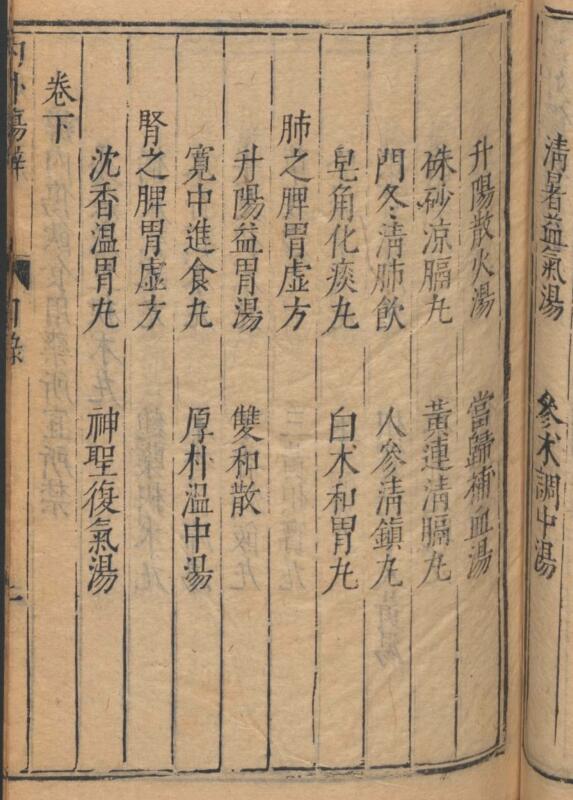 清暑益氣湯　參朮調中湯
升陽散火湯　當歸補血湯
硃砂涼膈丸　黃連清膈丸
門冬清肺飲　人參清鎮丸
皂角化痰丸　白朮和胃丸
肺之脾胃虛方
升陽益胃湯　雙和散
寬中進食丸　厚朴溫中湯
腎之脾胃虛方
沈香溫胃丸　神聖復氣湯
卷下
內外傷辨　目錄　上